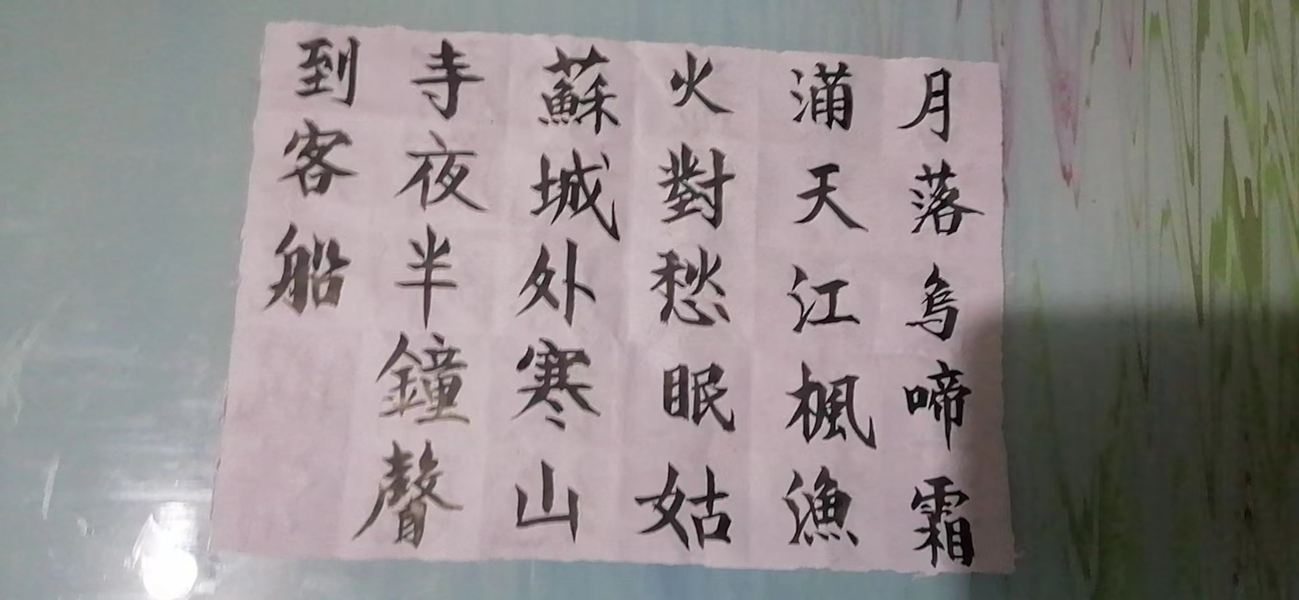 月落烏啼霜
滿天江楓漁
火對愁眠姑
蘇城外寒山
寺夜半鐘聲
到客船